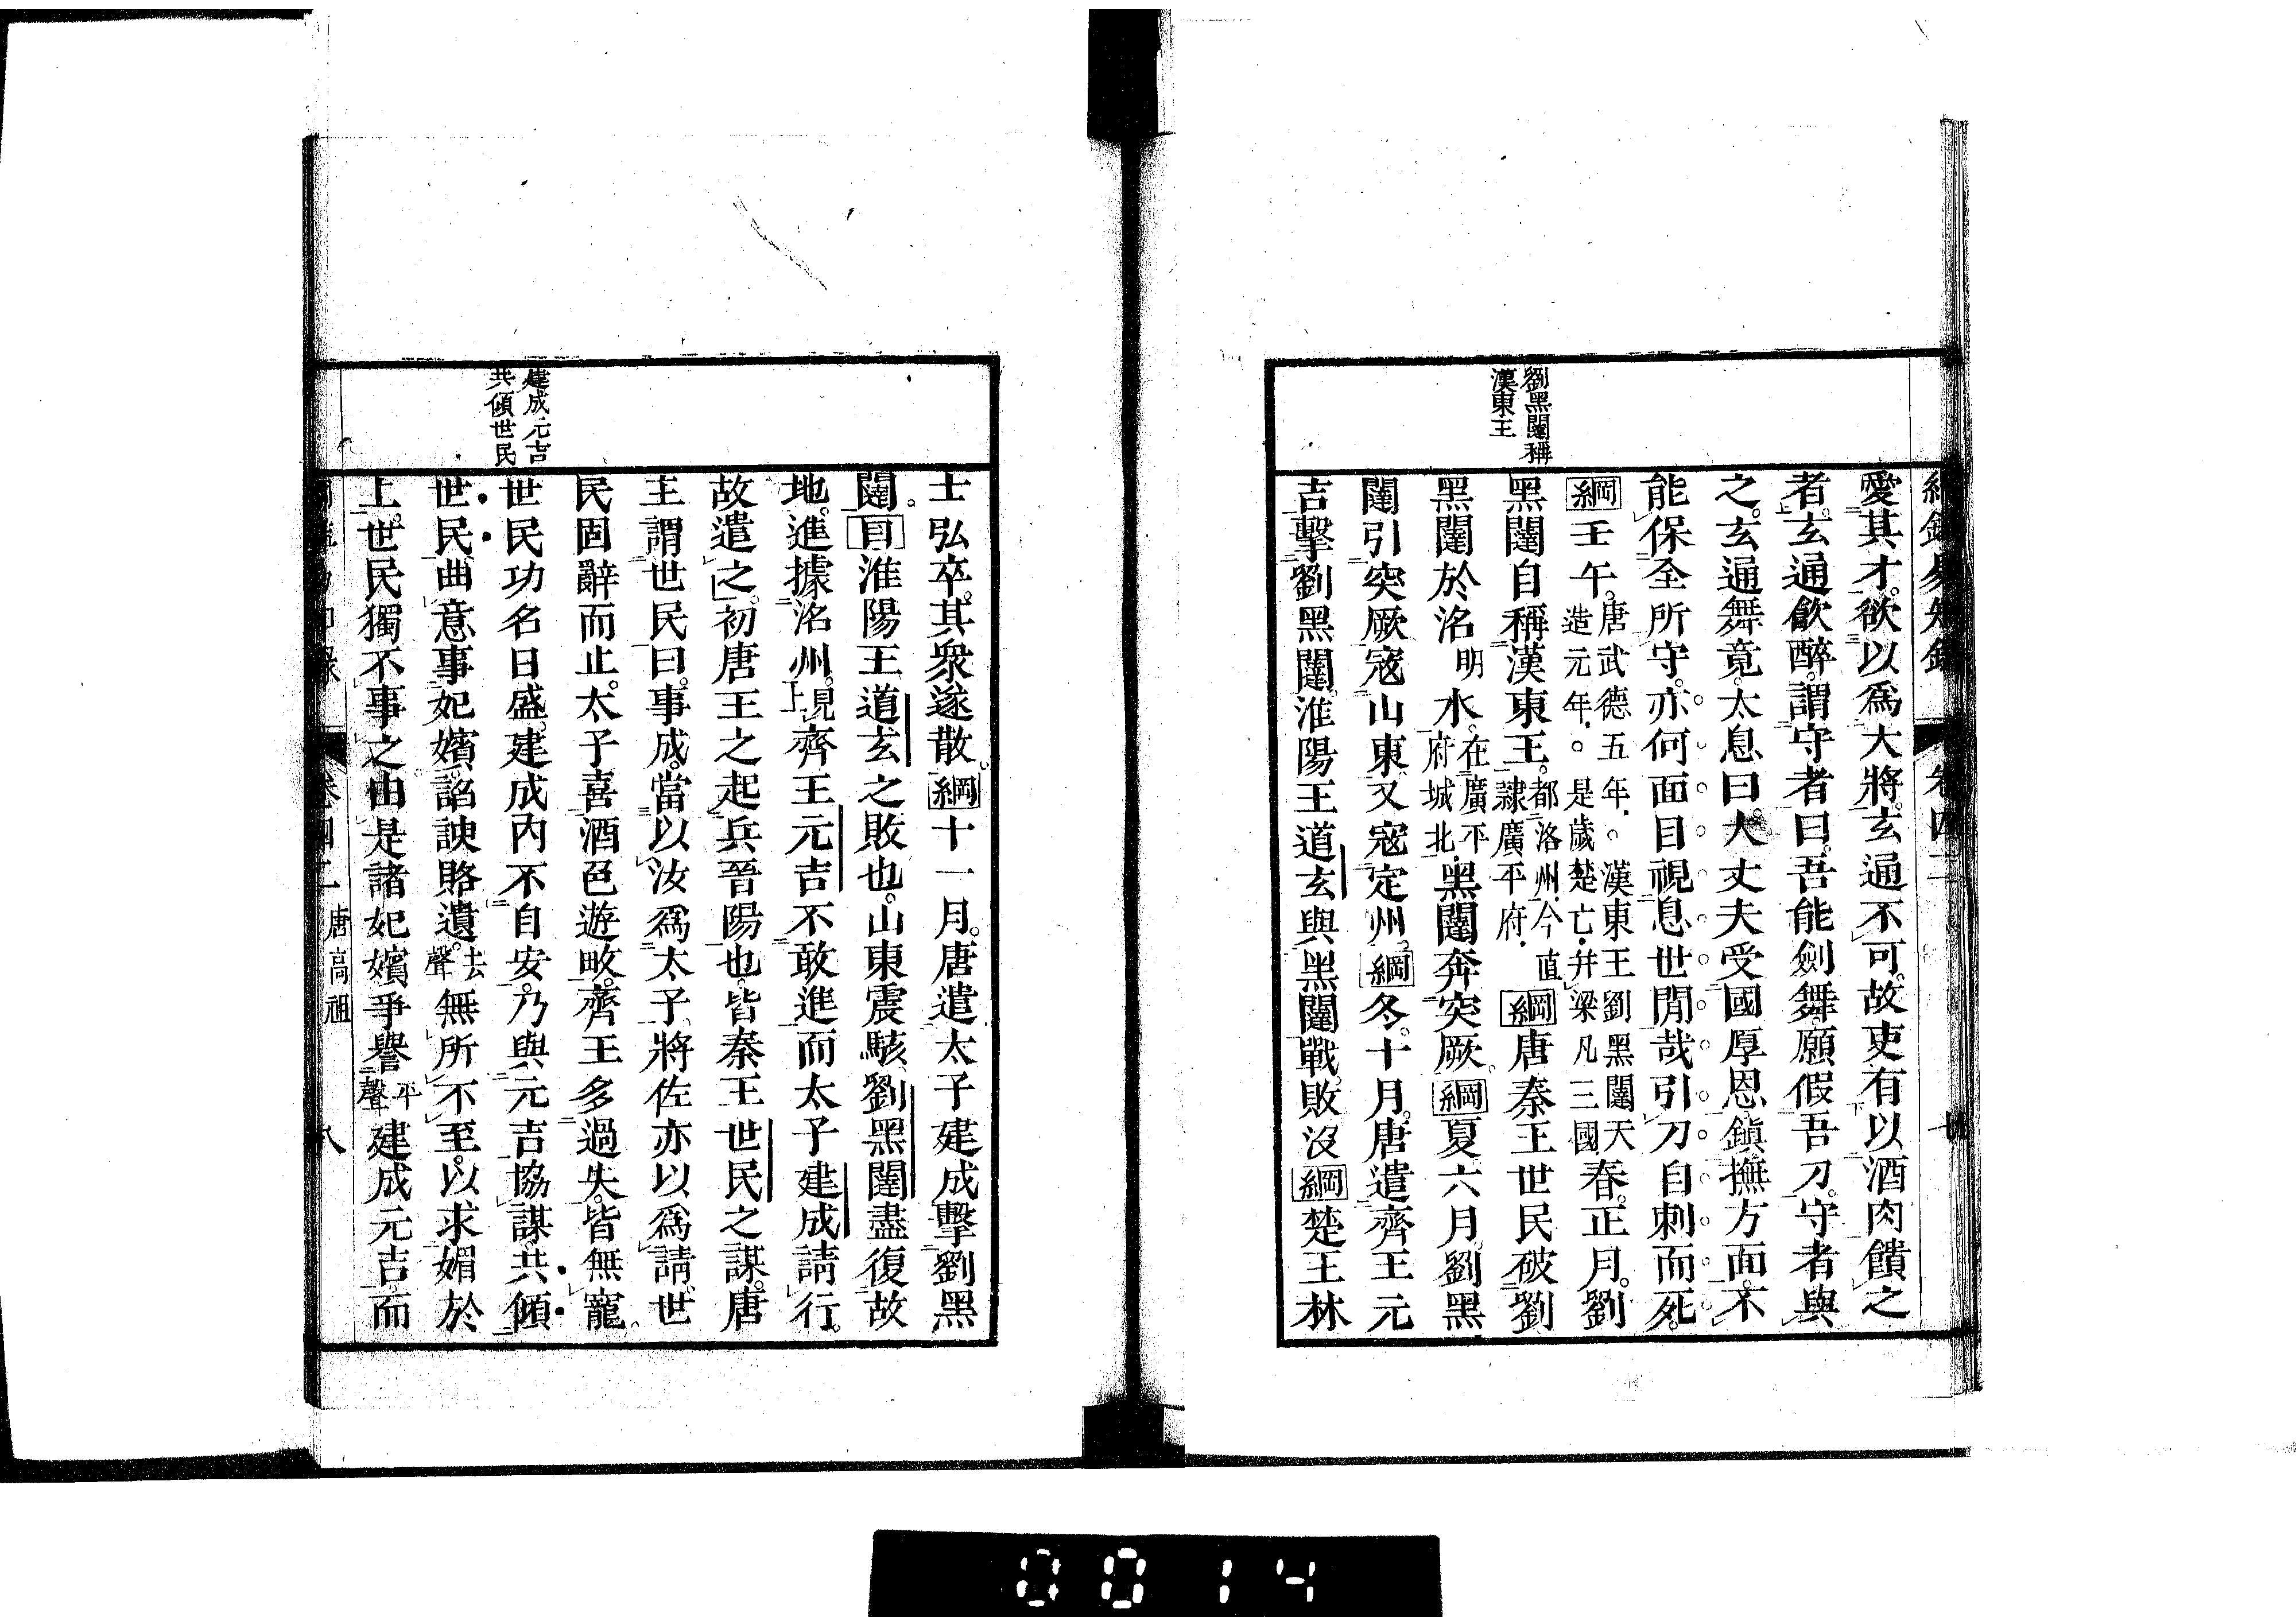 劉黑闥稱
漢東王
愛其才。欲以爲大將。玄通不可。故吏有以酒肉饋之
者。玄通飮醉。謂守者曰。吾能劍舞。願假吾刀。守者與
之。玄通舞竟。太息曰。大丈夫受國厚恩。鎭撫方面。不
能保全所守。亦何面目視息世閒哉。引刀自刺而死。
綱壬午。唐武德五年。漢東王劉黑闥天
造元年。是歲楚亡。幷梁凡三國春。正月。劉
黑闥自稱漢東王。都洺州。今直
隸廣平府。綱唐秦王世民破劉
黑闥於洺明水。在廣平
府城北。黑闥奔突厥。綱夏六月。劉黑
闥引突厥寇山東。又寇定州。綱冬。十月。唐遣齊王元
吉擊劉黑闥。淮陽王道玄與黑闥戰。敗沒。綱楚王林
士弘卒。其衆遂散。綱十一月。唐遣太子建成擊劉黑
闥。目淮陽王道玄之敗也。山東震駭。劉黑闥盡復故
地。進據洺州。見
上齊王元吉不敢進。而太子建成請行。
故遣之。初唐王之起兵晉陽也。皆秦王世民之謀。唐
王謂世民曰。事成。當以汝爲太子。將佐亦以爲請。世
民固辭而止。太子喜酒色遊畋。齊王多過失。皆無寵。
世民功名日盛。建成內不自安。乃與元吉協謀。共傾
世民。曲意事妃嬪。諂諛賂遺。去
聲無所不至。以求媚於
上。世民獨不事之。由是諸妃嬪爭譽平
聲建成元吉。而
建成元吉
共傾世民
卷四二 唐高祖 八